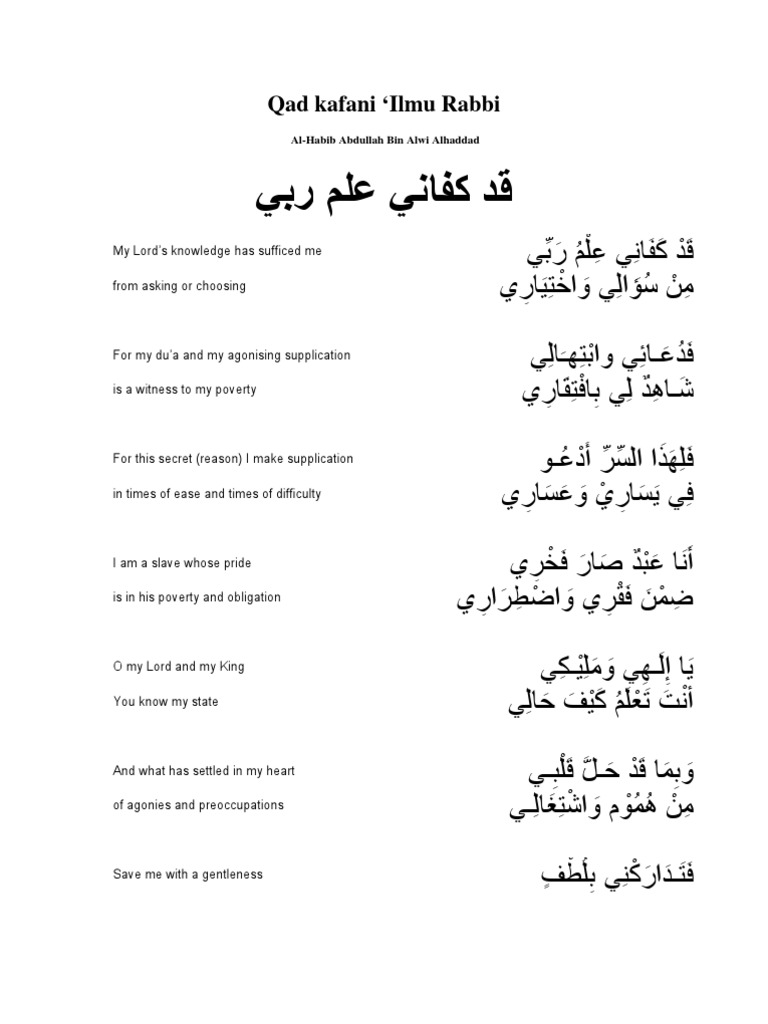 Qad kafani ‘Ilmu Rabbi
Al-Habib Abdullah Bin Alwi Alhaddad
قد كفاني علم ربي
My Lord’s knowledge has sufficed me
قَدْ كَفَانِي عِلْمُ رَبِّي
from asking or choosing
مِنْ سُؤَالِي وَاخْتِيَارِي
For my du’a and my agonising supplication
فَدُعَـائِي وابْتِهـَالِي
is a witness to my poverty
شَـاهِدٌ لِي بِافْتِقَارِي
For this secret (reason) I make supplication
فَلِهَذَا السِّرِّ أَدْعُـو
in times of ease and times of difficulty
فِي يَسَارِيْ وَعَسَارِي
I am a slave whose pride
أَنَا عَبْدٌ صَارَ فَخْرِي
is in his poverty and obligation
ضِمْنَ فَقْرِي وَاضْطِرَارِي
O my Lord and my King
يَا إِلَـهِي وَمَلِيْـكِي
You know my state
أَنْتَ تَعْلَمُ كَيْفَ حَالِي
And what has settled in my heart
وَبِمَا قَدْ حَـلَّ قَلْبِـي
of agonies and preoccupations
مِنْ هُمُوْم وَاشْتِغَالِـي
Save me with a gentleness
فَتَـدَارَكْنِي بِلُطْفٍ